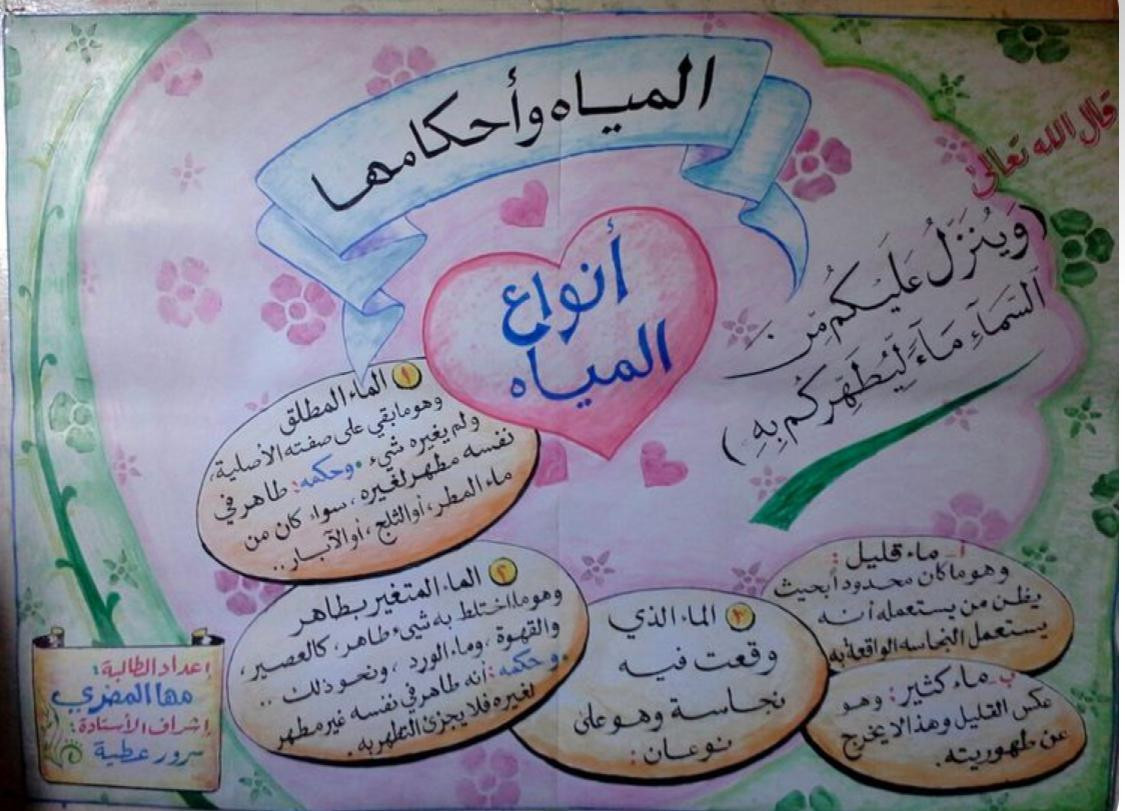 المياه وأحكامها
قال الله تعالى
(وَيُنَزِّلُ عَلَيْكُم مِّنَ
ٱلسَّمَآءِ مَآءً لِّيُطَهِّرَكُم بِهِ)
أنواع
المياه
١ الماء المطلق
وهو ما بقي على صفته الأصلية،
ولم يغيره شيء. وحكمه: طاهر في
نفسه مطهر لغيره، سواء كان من
ماء المطر، أو الثلج، أو الآبار..
٢ الماء المتغير بطاهر
وهو ما اختلط به شيء طاهر، كالعصير،
والقهوة، وماء الورد، ونحو ذلك..
وحكمه: أنه طاهر في نفسه غير مطهر
لغيره فلا يجزئ التطهر به.
٣ الماء الذي
وقعت فيه
نجاسة وهو على
نوعان:
أ- ماء قليل:
وهو ما كان محدودا بحيث
يظن من يستعمله أنه
يستعمل النجاسه الواقعة به
ب- ماء كثير: وهو
عكس القليل وهذا لا يخرج
عن طهوريته.
إعداد الطالبة:
مها المصري
إشراف الأستاذة:
سرور عطية